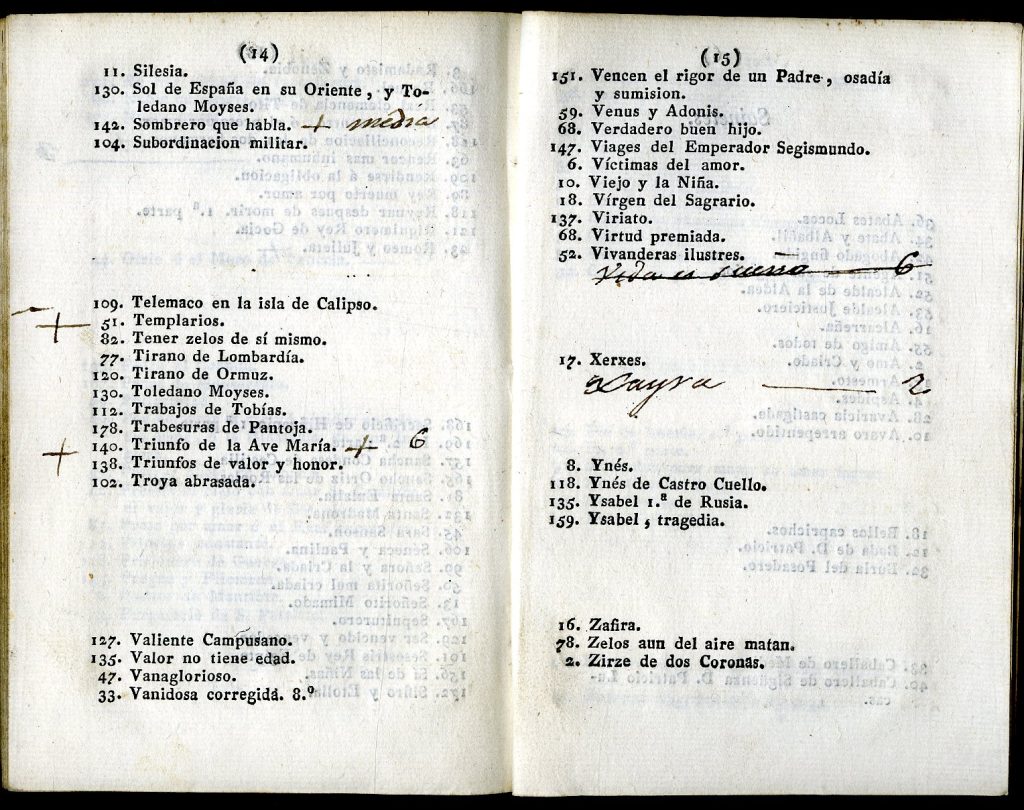 (14)
11. Silesia.
130. Sol de España en su Oriente, y To-
ledano Moyses.
142. Sombrero que habla. + media
104. Subordinacion militar.
109. Telemaco en la isla de Calipso.
+ 51. Templarios.
82. Tener zelos de sí mismo.
77. Tirano de Lombardía.
120. Tirano de Ormuz.
130. Toledano Moyses.
112. Trabajos de Tobías.
178. Trabesuras de Pantoja.
+ 140. Triunfo de la Ave María. + 6
138. Triunfos de valor y honor.
102. Troya abrasada.
127. Valiente Campusano.
135. Valor no tiene edad.
47. Vanaglorioso.
33. Vanidosa corregida. 8.º
(15)
151. Vencen el rigor de un Padre, osadía
y sumision.
59. Venus y Adonis.
68. Verdadero buen hijo.
147. Viages del Emperador Segismundo.
6. Víctimas del amor.
10. Viejo y la Niña.
18. Vírgen del Sagrario.
137. Viriato.
68. Virtud premiada.
52. Vivanderas ilustres.
Vida es sueño — 6
17. Xerxes.
Xayra — 2
8. Ynés.
118. Ynés de Castro Cuello.
135. Ysabel 1.ª de Rusia.
159. Ysabel, tragedia.
16. Zafira.
78. Zelos aun del aire matan.
2. Zirze de dos Coronas.